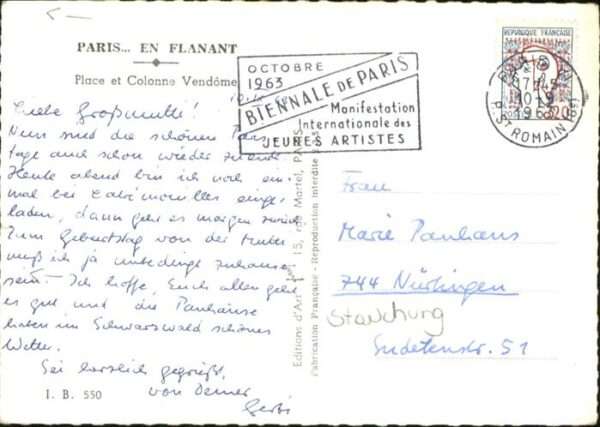 PARIS... EN FLANANT
Place et Colonne Vendôme
Liebe Großmutti!
Nun sind die schönen Paris
tage auch schon wieder zuende.
Heute abend bin ich noch ein-
mal bei einge-
laden, dann geht es morgen zurück.
Zum Geburtstag von der Mutti
muß ich ja unbedingt zuhause
sein. Ich hoffe, Euch allen geht
es gut und die Panhänse
haben im Schwarzwald schönes
Wetter.
Sei herzlich gegrüßt,
von Deiner
Gerbi
I. B. 550
Editions d'Art 15, rue Martel, PARIS
Fabrication Française - Reproduction Interdite
OCTOBRE
1963
BIENNALE DE PARIS
Manifestation
Internationale des
JEUNES ARTISTES
REPUBLIQUE FRANÇAISE
0,20
POSTES
17H45
10-9
1963
R. St ROMAIN (6e)
Frau
Marie Panhans
744 Nürtingen
Sudetenstr. 51